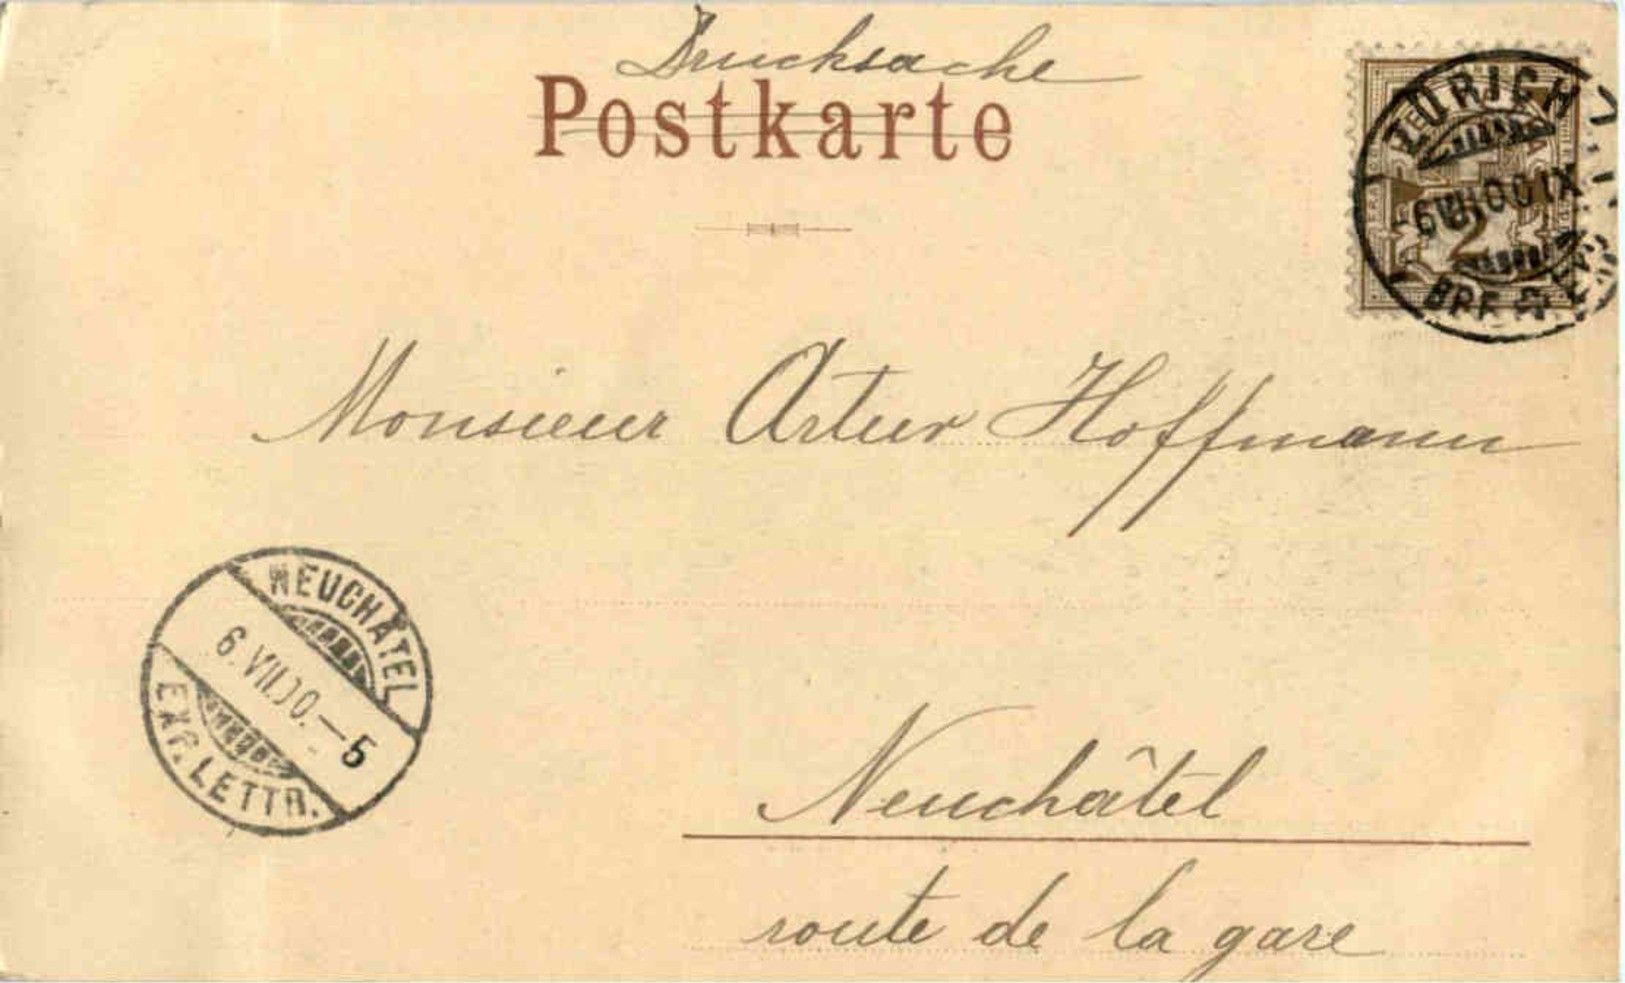 Drucksache
Postkarte
ZÜRICH
2
Monsieur Artur Hoffmann
NEUCHÂTEL
6.VII.00.—5
EXP. LETTR.
Neuchâtel
route de la gare